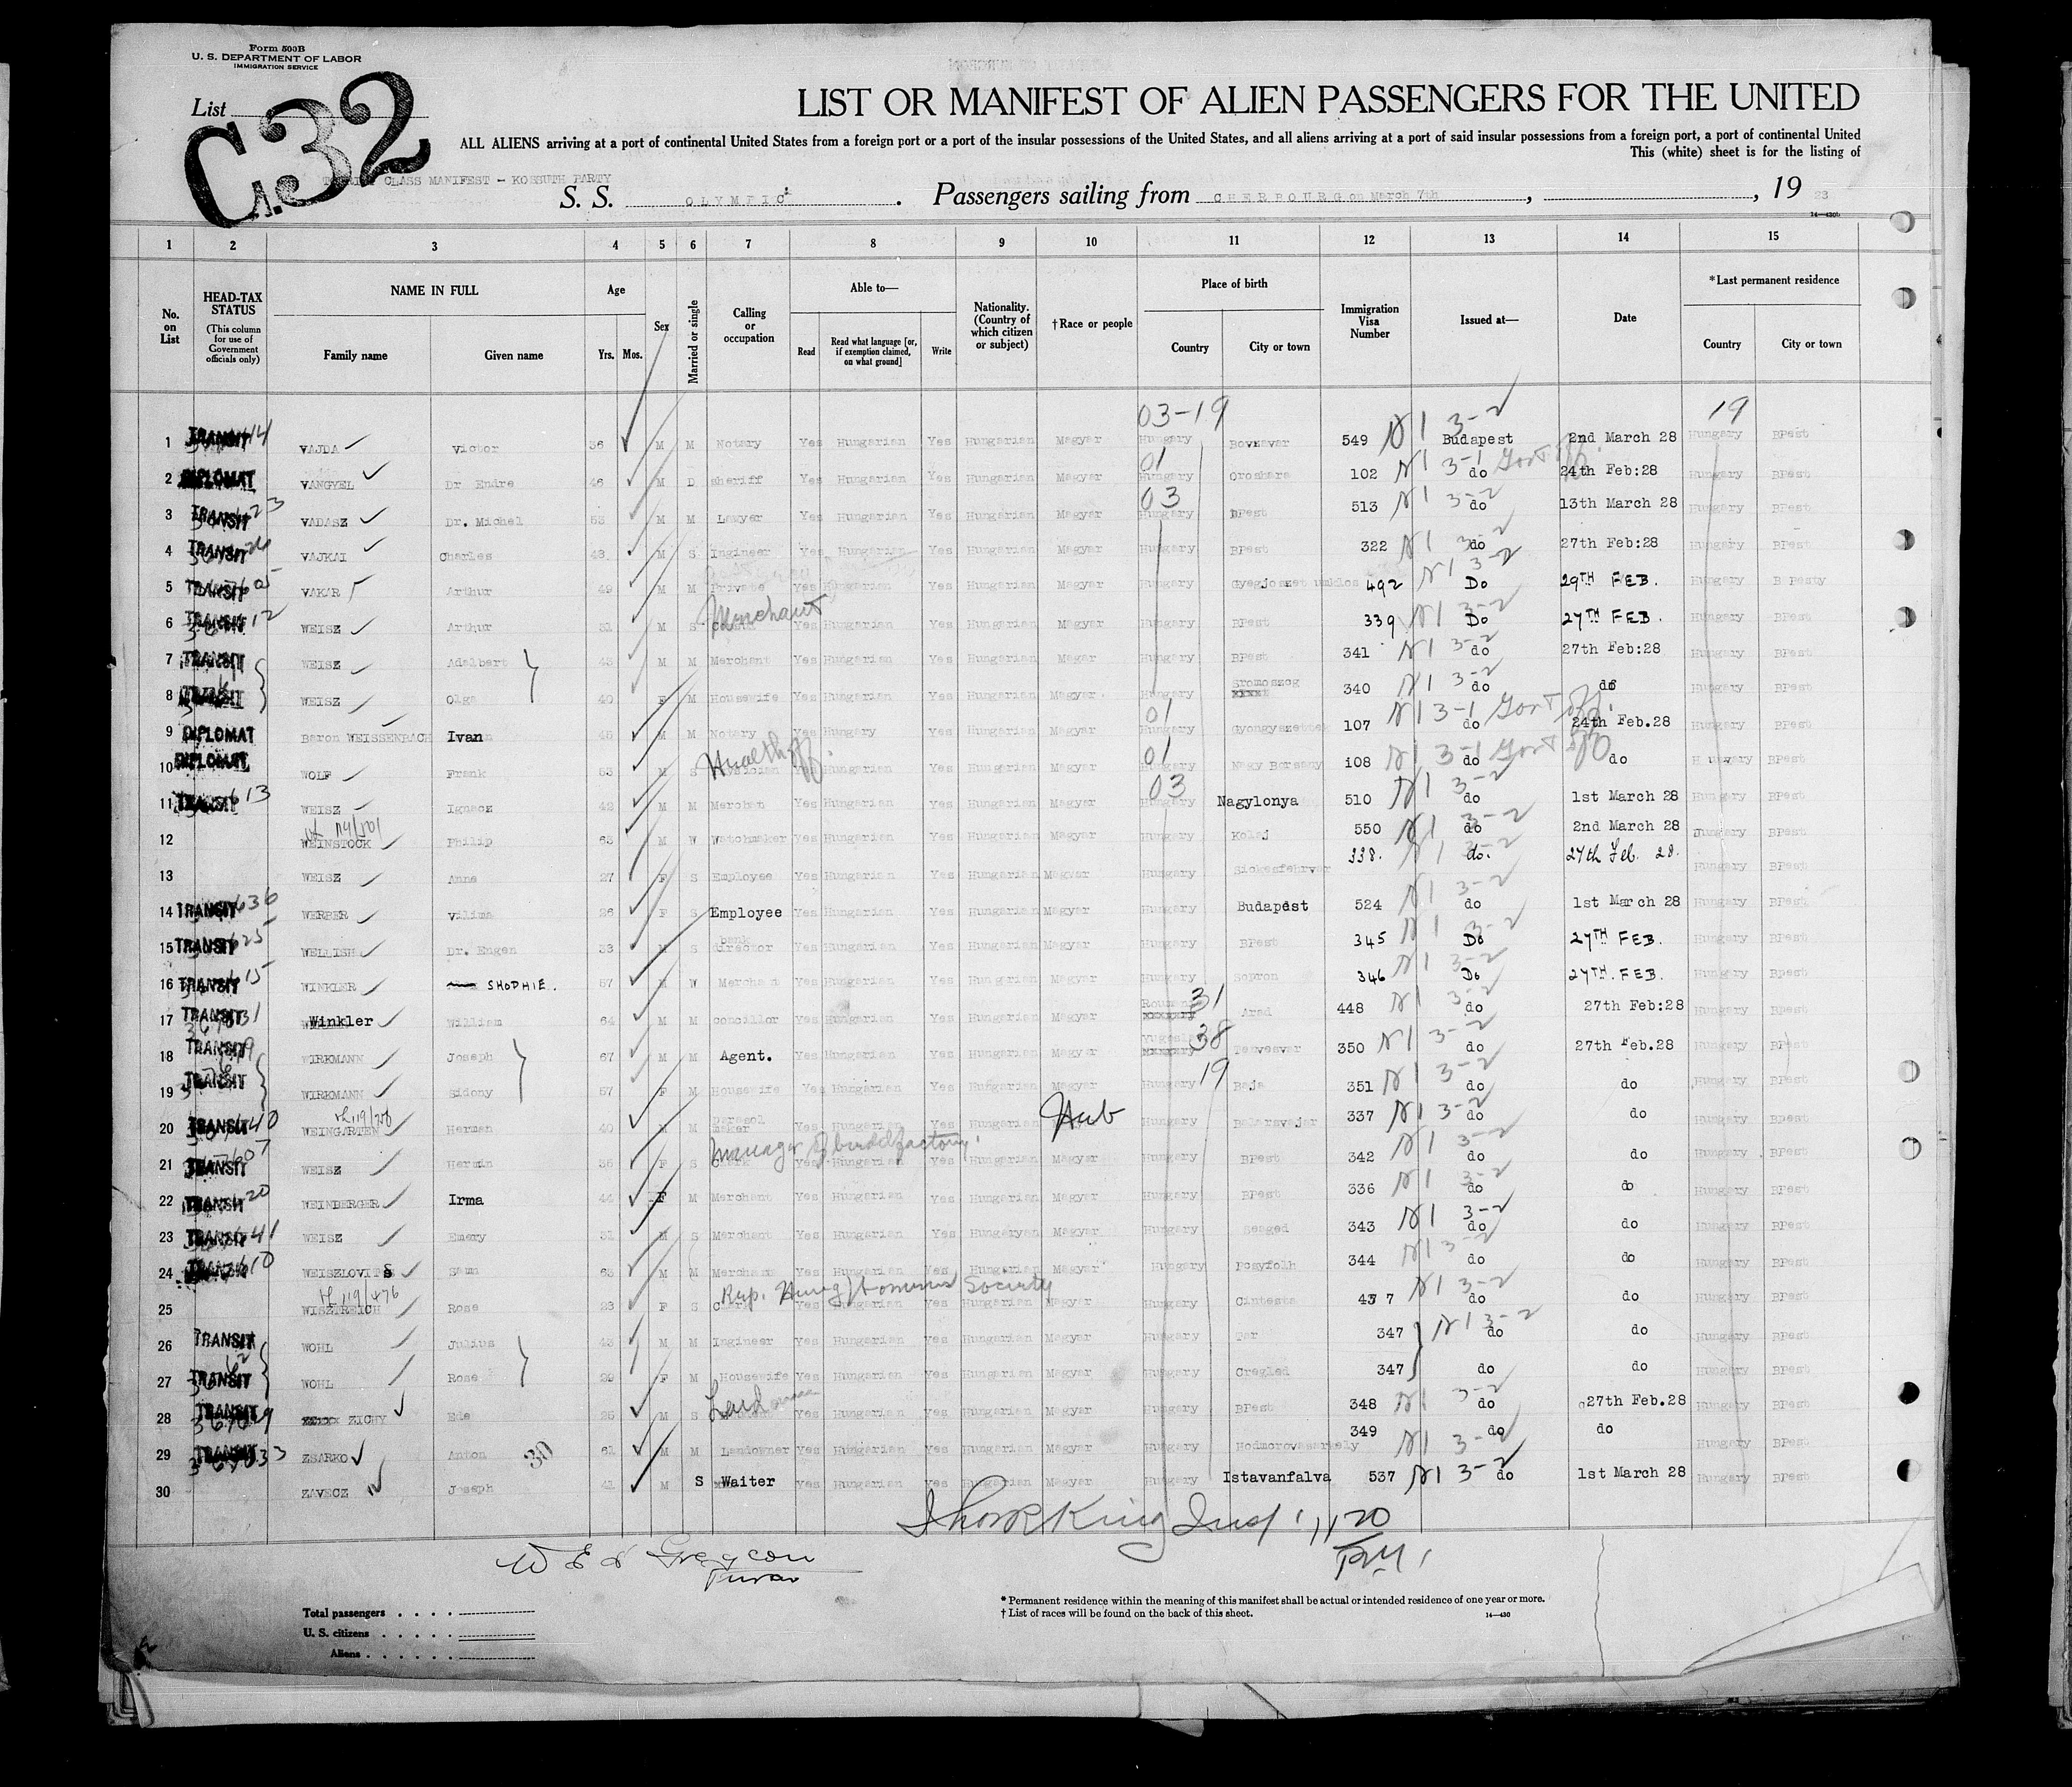 Form 500B
U. S. DEPARTMENT OF LABOR
IMMIGRATION SERVICE
List
C.32
LIST OR MANIFEST OF ALIEN PASSENGERS FOR THE UNITED
ALL ALIENS arriving at a port of continental United States from a foreign port or a port of the insular possessions of the United States, and all aliens arriving at a port of said insular possessions from a foreign port, a port of continental United
This (white) sheet is for the listing of
TOURIST CLASS MANIFEST - KOSSUTH PARTY
S. S. OLYMPIC . Passengers sailing from CHERBOURG on March 7th , , 19
14—430b
1 2 3 4 5 6 7 8 9 10 11 12 13 14 15
No. on List
HEAD-TAX STATUS
(This column for use of Government officials only)
NAME IN FULL
Family name
Given name
Age
Yrs. Mos.
Sex
Married or single
Calling or occupation
Able to—
Read
Read what language [or, if exemption claimed, on what ground]
Write
Nationality. (Country of which citizen or subject)
† Race or people
Place of birth
Country
City or town
Immigration Visa Number
Issued at—
Date
* Last permanent residence
Country
City or town
03-19 19
1 TRANSIT VAJDA Victor 36 M M Notary Yes Hungarian Yes Hungarian Magyar Hungary 549 N1 3-2 Budapest 2nd March 28 Hungary BPest
2 DIPLOMAT VANGYEL Dr Endre 46 M D sheriff Yes Hungarian Yes Hungarian Magyar 01 Hungary Oroshara 102 N1 3-1 do Govt Off. 24th Feb:28 Hungary BPest
3 TRANSIT VADASZ Dr. Michel 53 M M Lawyer Yes Hungarian Yes Hungarian Magyar 03 Hungary BPest 513 N1 3-2 do 13th March 28 Hungary BPest
4 TRANSIT VAJKAI Charles 48 M S Ingineer Yes Hungarian Yes Hungarian Magyar Hungary BPest 322 N1 3-2 do 27th Feb:28 Hungary BPest
5 TRANSIT VAKAR Arthur 49 M M Private Yes Hungarian Yes Hungarian Magyar Hungary 492 N1 3-2 Do 29TH FEB. Hungary B Pesty
6 TRANSIT WEISZ Arthur 31 M S Merchant Yes Hungarian Yes Hungarian Magyar Hungary BPest 339 N1 3-2 Do 27TH FEB. Hungary BPest
7 TRANSIT WEISZ Adalbert 43 M M Merchant Yes Hungarian Yes Hungarian Magar Hungary BPest 341 N1 3-2 do 27th Feb:28 Hungary BPest
8 TRANSIT WEISZ Olga 40 F M Housewife Yes Hungarian Yes Hungarian Magyar Hungary 340 N1 3-2 do do Hungary BPest
9 DIPLOMAT Baron WEISSENBACH Ivan 45 M M Notary Yes Hungary Yes Hungarian Magyar 01 Hungary 107 N1 3-1 do Govt Off. 24th Feb.28 Hungary BPest
10 DIPLOMAT WOLF Frank 53 M S Health off. Yes Hungarian Yes Hungarian Magyar 01 Hungary Nagy Borsony 108 N1 3-1 do Govt Off do Hungary BPest
11 TRANSIT WEISZ Ignacz 42 M M Merchat Yes Hungarian Yes Hungarian Magyar 03 Hungary Nagylonya 510 N1 3-2 do 1st March 28 Hungary BPest
12 WEINSTOCK Philip 63 M W Watchmaker Yes Hungarian Yes Hungarian Magyar Hungary Kolaj 550 N1 3-2 do 2nd March 28 Hungary BPest
13 WEISZ Anna 27 F S Employee Yes Hungarian Yes Hungarian Magyar Hungary 338. N1 3-2 do. 27th Feb. 28. Hungary BPest
14 TRANSIT WERBER Vilima 26 F S Employee Yes Hungarian Yes Hungarian Magyar Hungary Budapest 524 N1 3-2 do 1st March 28 Hungary BPest
15 TRANSIT WELLISH Dr. Eugen 33 M S bank director Yes Hungarian Yes Hungarian Magyar Hungary BPest 345 N1 3-2 Do 27TH FEB. Hungary BPest
16 TRANSIT WINKLER SHOPHIE. 57 W Merchant Yes Hungarian Yes Hungarian Magyar Hungary Sopron 346 N1 3-2 Do 27TH. FEB. Hungary BPest
17 TRANSIT Winkler William 64 M M concillor Yes Hungarian Yes Hungarian Magyar 31 Arad 448 N1 3-2 do 27th Feb:28 Hungary BPest
18 TRANSIT WIRKMANN Joseph 67 M M Agent. Yes Hungarian Yes Hungarian Magyar 38 350 N1 3-2 do 27th Feb.28 Hungary BPest
19 TRANSIT WIRKMANN Sidony 57 F M Housewife Yes Hungarian Yes Hungarian Magyar Hungary 19 Baja 351 N1 3-2 do do Hungary BPest
20 TRANSIT WEINGARTEN Herman 40 M M parasol maker Yes Hungarian Yes Hungarian Magyar Heb Hungary 337 N1 3-2 do do Hungary BPest
21 TRANSIT WEISZ Hermin 36 F S Manager of factory. Yes Hungarian Yes Hungarian Magyar Hungary BPest 342 N1 3-2 do do Hungary BPest
22 TRANSIT WEINBERGER Irma 44 F M Merchant Yes Hungarian Yes Hungarian Magyar Hungary BPest 336 N1 3-2 do do Hungary BPest
23 TRANSIT WEISZ Emery 31 M S Merchant Yes Hungarian Yes Hungaryan Magyar Hungary Seeged 343 N1 3-2 do do Hungary BPest
24 TRANSIT WEISZLOVITS Samu 63 M M Merchant Yes Hungarian Yes Hungarian Magyar Hungary 344 N1 3-2 do do Hungary BPest
25 WISZTREICH Rose 23 F S Rep. Hung. Society Yes Hungarian Yes Hungarian Magyar Hungary Cintesta 437 N1 3-2 do do Hungary BPest
26 TRANSIT WOHL Julius 43 M M Ingineer Yes Hungarian Yes Hungarian Magyar Hungary Tar 347 N1 3-2 do do Hungary BPest
27 TRANSIT WOHL Rose 29 F M Housewife Yes Hungarian Yes Hungarian Magyar Hungary Cregled 347 do do Hungary BPest
28 TRANSIT ZICHY Ede 25 M S Land owner Yes Hungarian Yes Hungarian Magyar Hungary BPest 348 N1 3-2 do 27th Feb.28 Hungary BPest
29 TRANSIT ZSARKO Anton 30 61 M M Landowner Yes Hungarian Yes Hungarian Magyar Hungary 349 N1 3-2 do do Hungary BPest
30 ZAVECZ Joseph 41 M S Waiter Yes Hungarian Yes Hungarian Magyar Hungary Istavanfalva 537 N1 3-2 do 1st March 28 Hungary BPest
Total passengers . . . .
U. S. citizens . . . . .
Aliens . . . . . .
* Permanent residence within the meaning of this manifest shall be actual or intended residence of one year or more.
† List of races will be found on the back of this sheet.
14—430